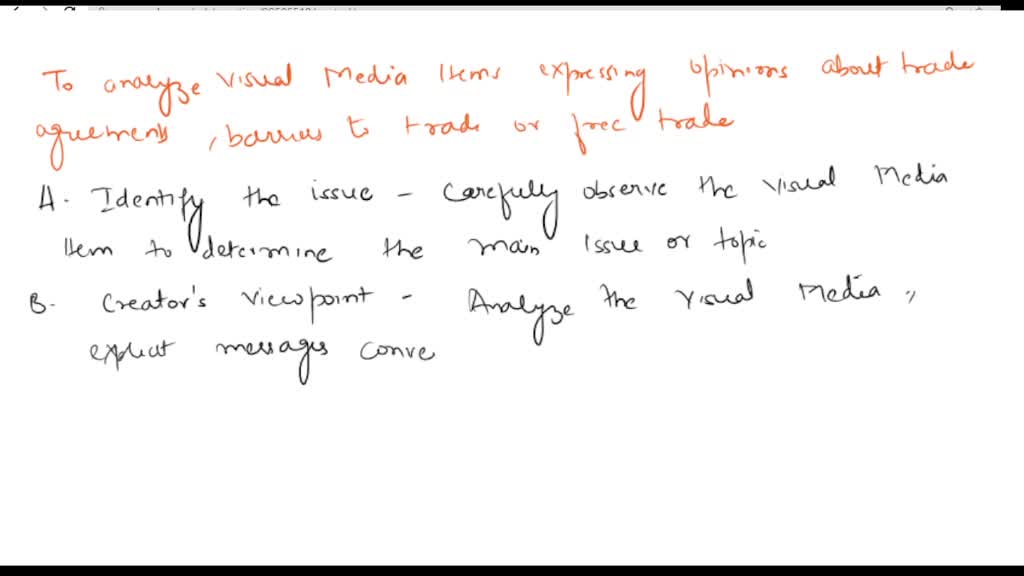 To analyze visual Media Items expressing opinions about trade
agreements, barriers to trade or free trade
A. Identify the issue - Carefully observe the visual Media
Item to determine the main issue or topic
B. Creator's viewpoint - Analyze the visual Media,
explicit messages conve